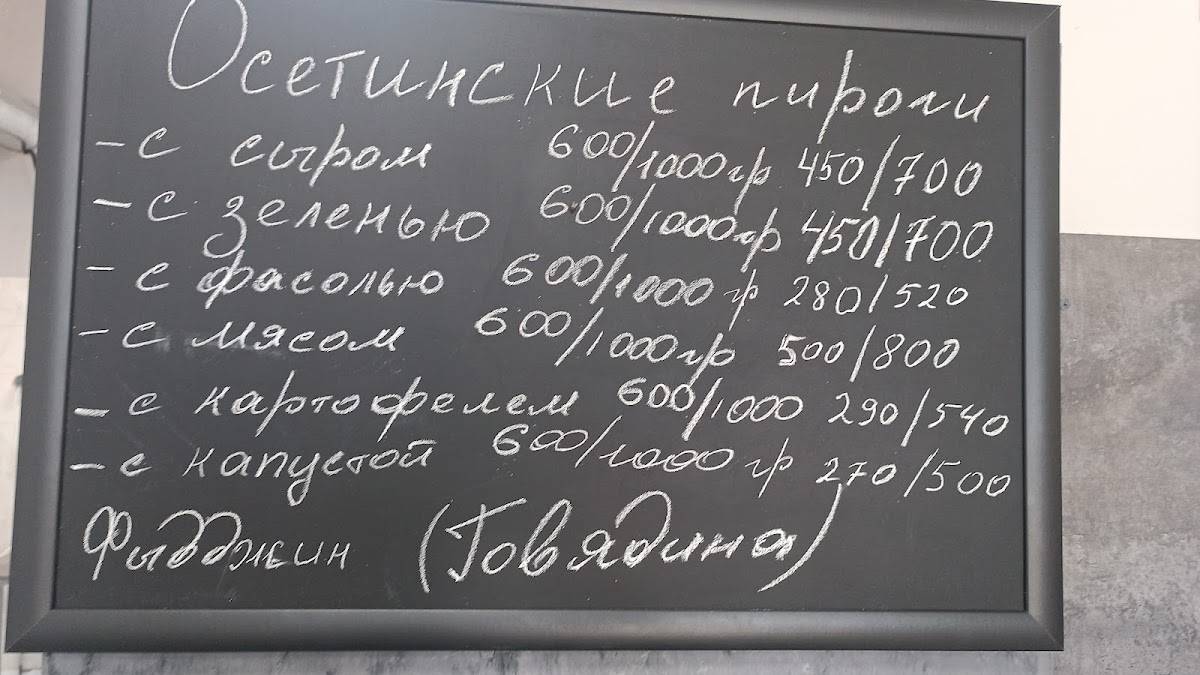 Осетинские пироги
- с сыром 600/1000гр 450/700
- с зеленью 600/1000гр 450/700
- с фасолью 600/1000 гр 280/520
- с мясом 600/1000гр 500/800
- с картофелем 600/1000 290/540
- с капустой 600/1000 гр 270/500
Фыдджин (Говядина)